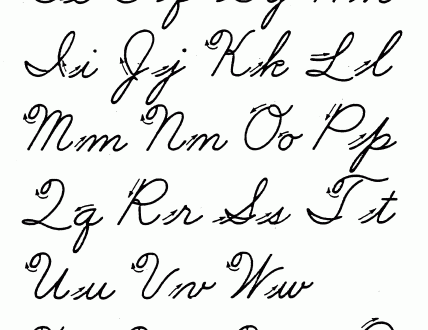 Ii Jj Kk Ll
Mm Nn Oo Pp
Qq Rr Ss Tt
Uu Vv Ww